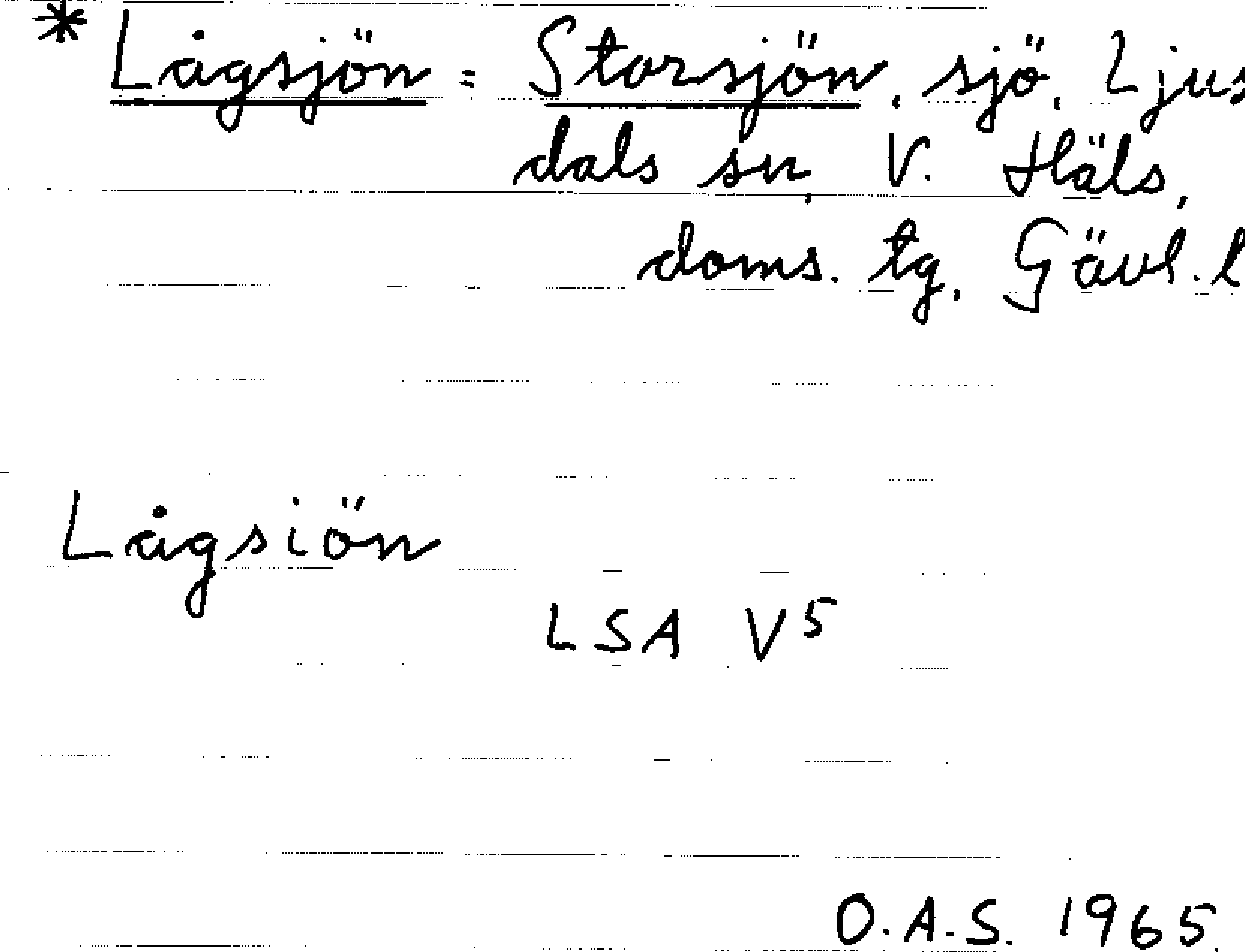 * Lågsjön = Storsjön, sjö, Ljus
dals sn, V. Häls,
doms. tg, Gävl. l
Lågsiön
LSA V5
O.A.S. 1965.